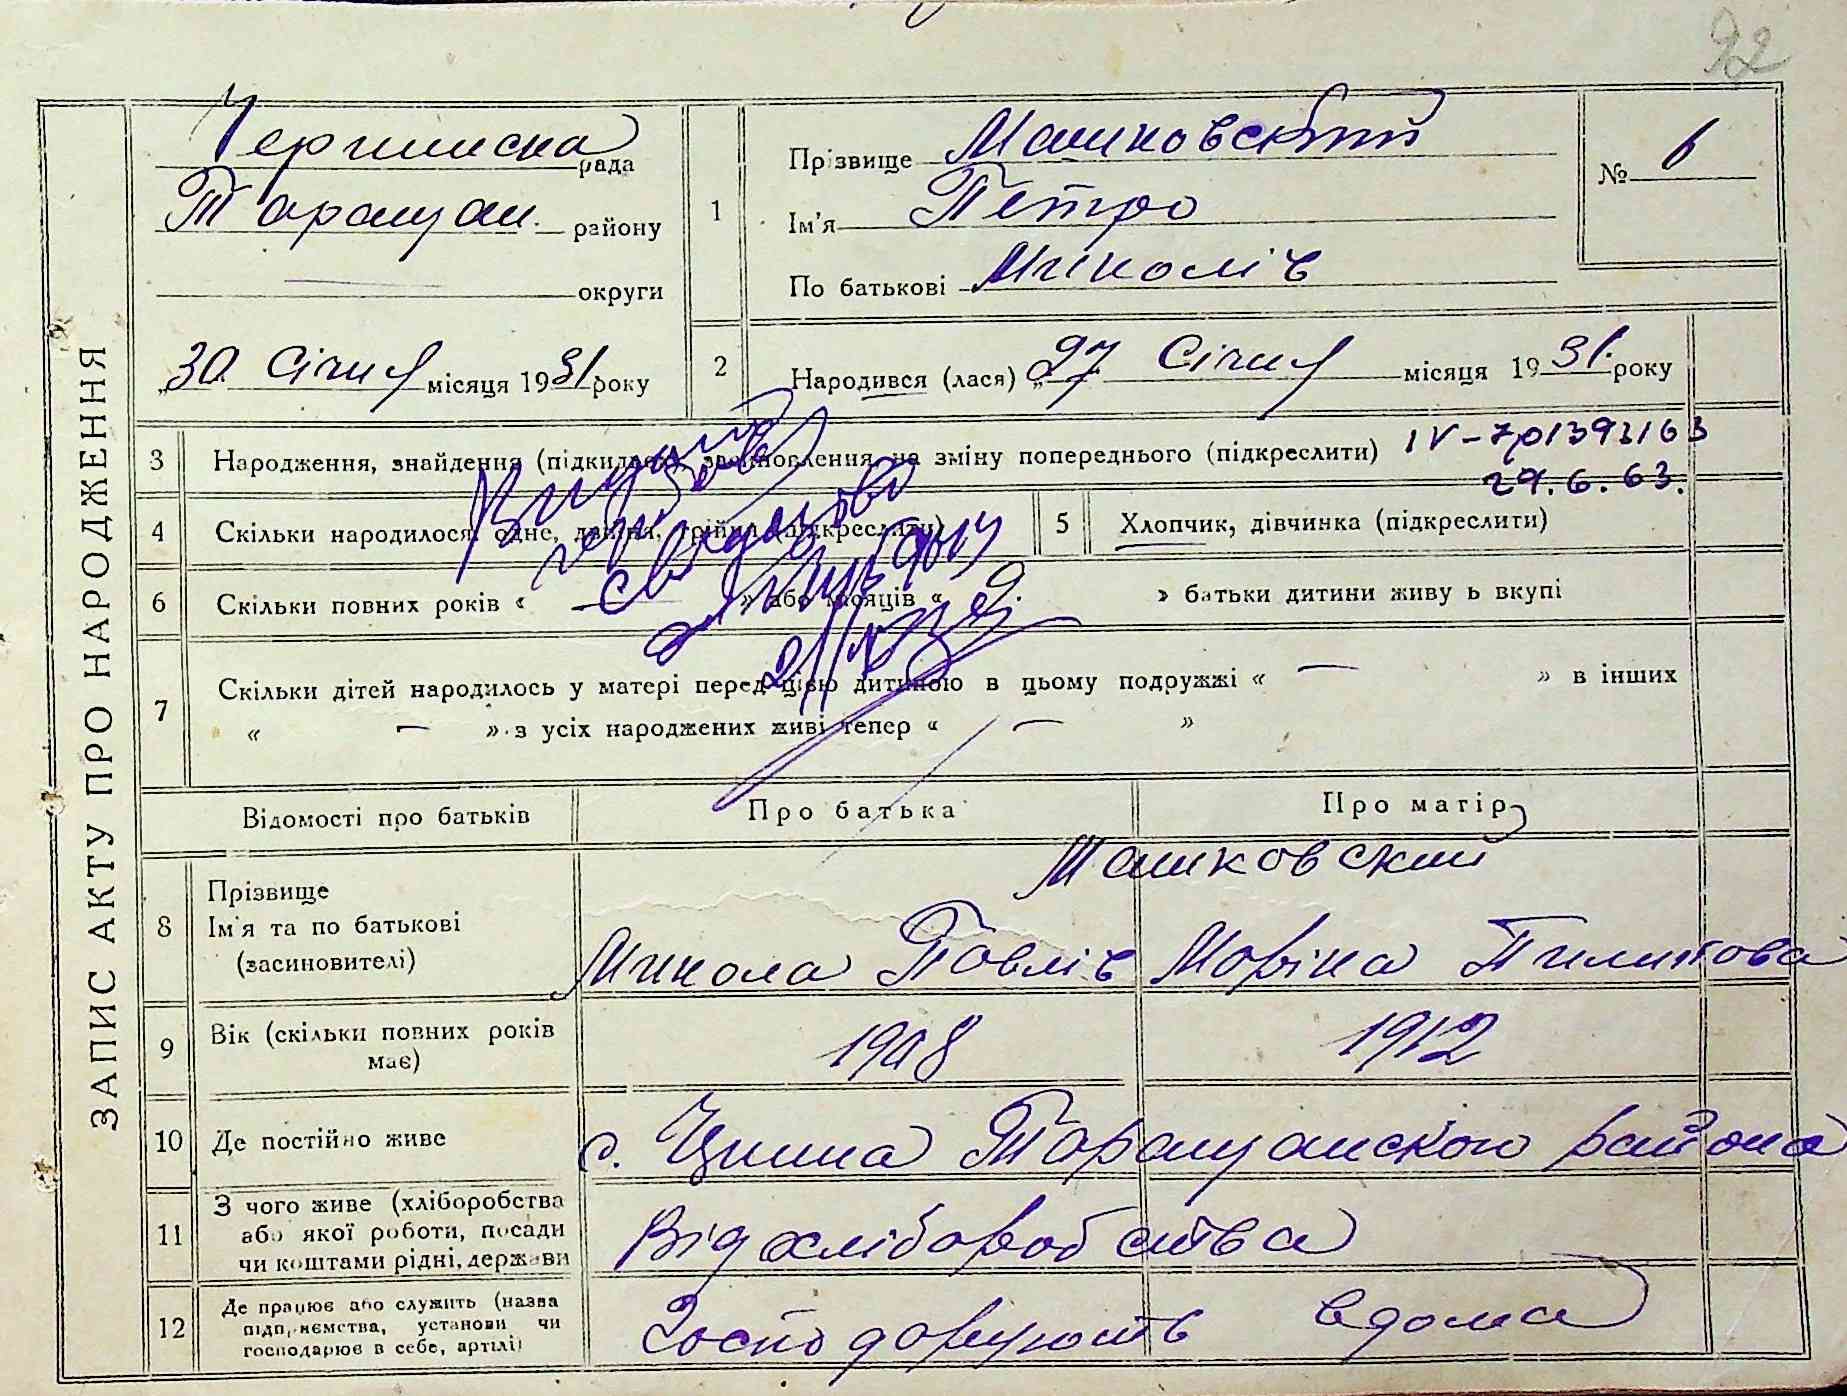 92
ЗАПИС АКТУ ПРО НАРОДЖЕННЯ
рада
Таращан. району
округи
"30 Січня місяця 1931 року
1
Прізвище Машковський
Ім'я Петро
По батькові Миколів
№ 6
2
Народився (лася) „27 Січня місяця 1931. року
3 Народження, знайдення (підкидька), засиновлення на зміну попереднього (підкреслити) IV-701393163
29.6.63.
4 Скільки народилося: одне, двійня, трійня (підкреслити)
5 Хлопчик, дівчинка (підкреслити)
6 Скільки повних років « — » або місяців « 9. » батьки дитини живуть вкупі
7 Скільки дітей народилось у матері перед цією дитиною в цьому подружжі « — » в інших
« — » з усіх народжених живі тепер « — »
Відомості про батьків
Про батька
Про матір
8 Прізвище
Ім'я та по батькові
(засиновителі)
Машковский
Микола Павлів
Моріна Пилипова
9 Вік (скільки повних років
має)
1908
1912
10 Де постійно живе
с. Таращанского района
11 З чого живе (хліборобства
або якої роботи, посади
чи коштами рідні, держави
Від хліборобства
12 Де працює або служить (назва
підприємства, установи чи
господарює в себе, артілі)
Господарюють вдома